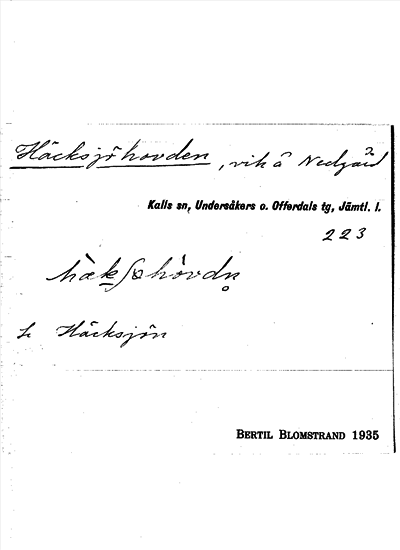 Häcksjöhovden, vik å Nedgård 2
Kalls sn, Undersåkers o. Offerdals tg, Jämtl. l.
223
Häcksjön
BERTIL BLOMSTRAND 1935